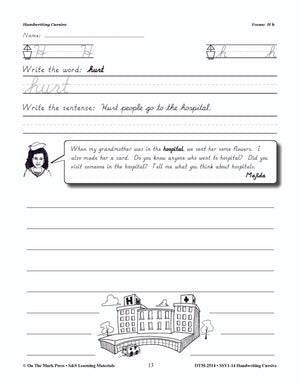 Handwriting Cursive Focus: H h
Name:
H H h h
Write the word: hurt
hurt
Write the sentence: Hurt people go to the hospital.
When my grandmother was in the hospital, we sent her some flowers. I
also made her a card. Do you know anyone who went to hospital? Did you
visit someone in the hospital? Tell me what you think about hospitals.
Majida
H
© On The Mark Press • S&S Learning Materials 13 OTM-2514 • SSY1-14 Handwriting Cursive